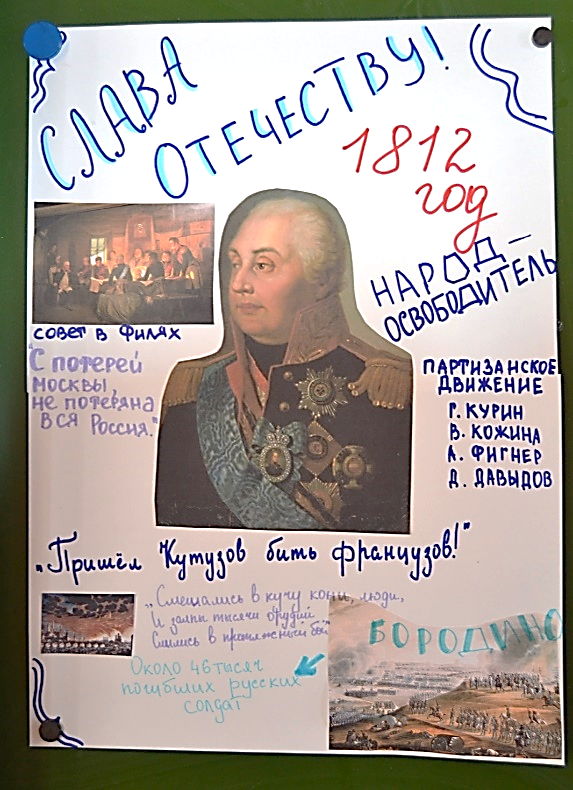 СЛАВА
ОТЕЧЕСТВУ!
1812
год
НАРОД –
ОСВОБОДИТЕЛЬ
СОВЕТ В ФИЛЯХ
"С потерей
Москвы,
не потеряна
вся Россия."
ПАРТИЗАНСКОЕ
ДВИЖЕНИЕ
Г. КУРИН
В. КОЖИНА
А. ФИГНЕР
Д. ДАВЫДОВ
„Пришёл Кутузов бить французов!"
„Смешались в кучу кони, люди,
И залпы тысячи орудий
Слились в протяжный вой"
БОРОДИНО
Около 46 тысяч
погибших русских
солдат